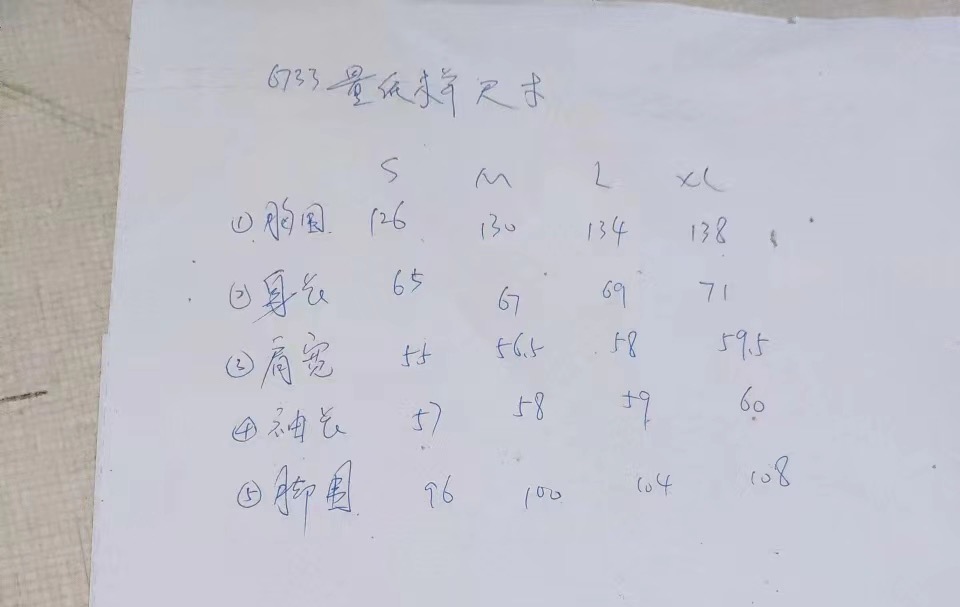 6733量纸样尺寸
S M L XL
①胸围 126 130 134 138
②身长 65 67 69 71
③肩宽 55 56.5 58 59.5
④袖长 57 58 59 60
⑤脚围 96 100 104 108